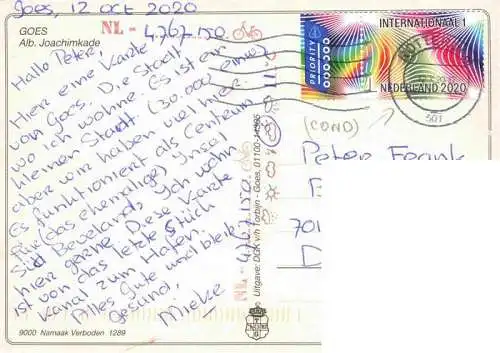 Goes, 12 oct 2020
NL-4.767.150.
GOES
Alb. Joachimkade
Hallo Peter,
Hier eine Karte
von Goes. Die Stadt
wo ich wohne. Es ist ein
kleinen Stadt (30.000 einw)
aber wir haben viel hier.
Es funktioniert als Centrum
für (das ehemalige) Insel
Süd Bevelands. Ich wohn
hier gerne. Diese Karte
ist von das letzte Stück
Kanal zum Hafen.
Alles gute und bleib
gesund,
Mieke
9000 Namaak Verboden 1289
NL-4.767.150.
Uitgave: DGK v/h Torbijn - Goes, 01100-14995
PRIORITY
INTERNATIONAAL 1
NEDERLAND 2020
501
(COND)
Peter Frank
701
D